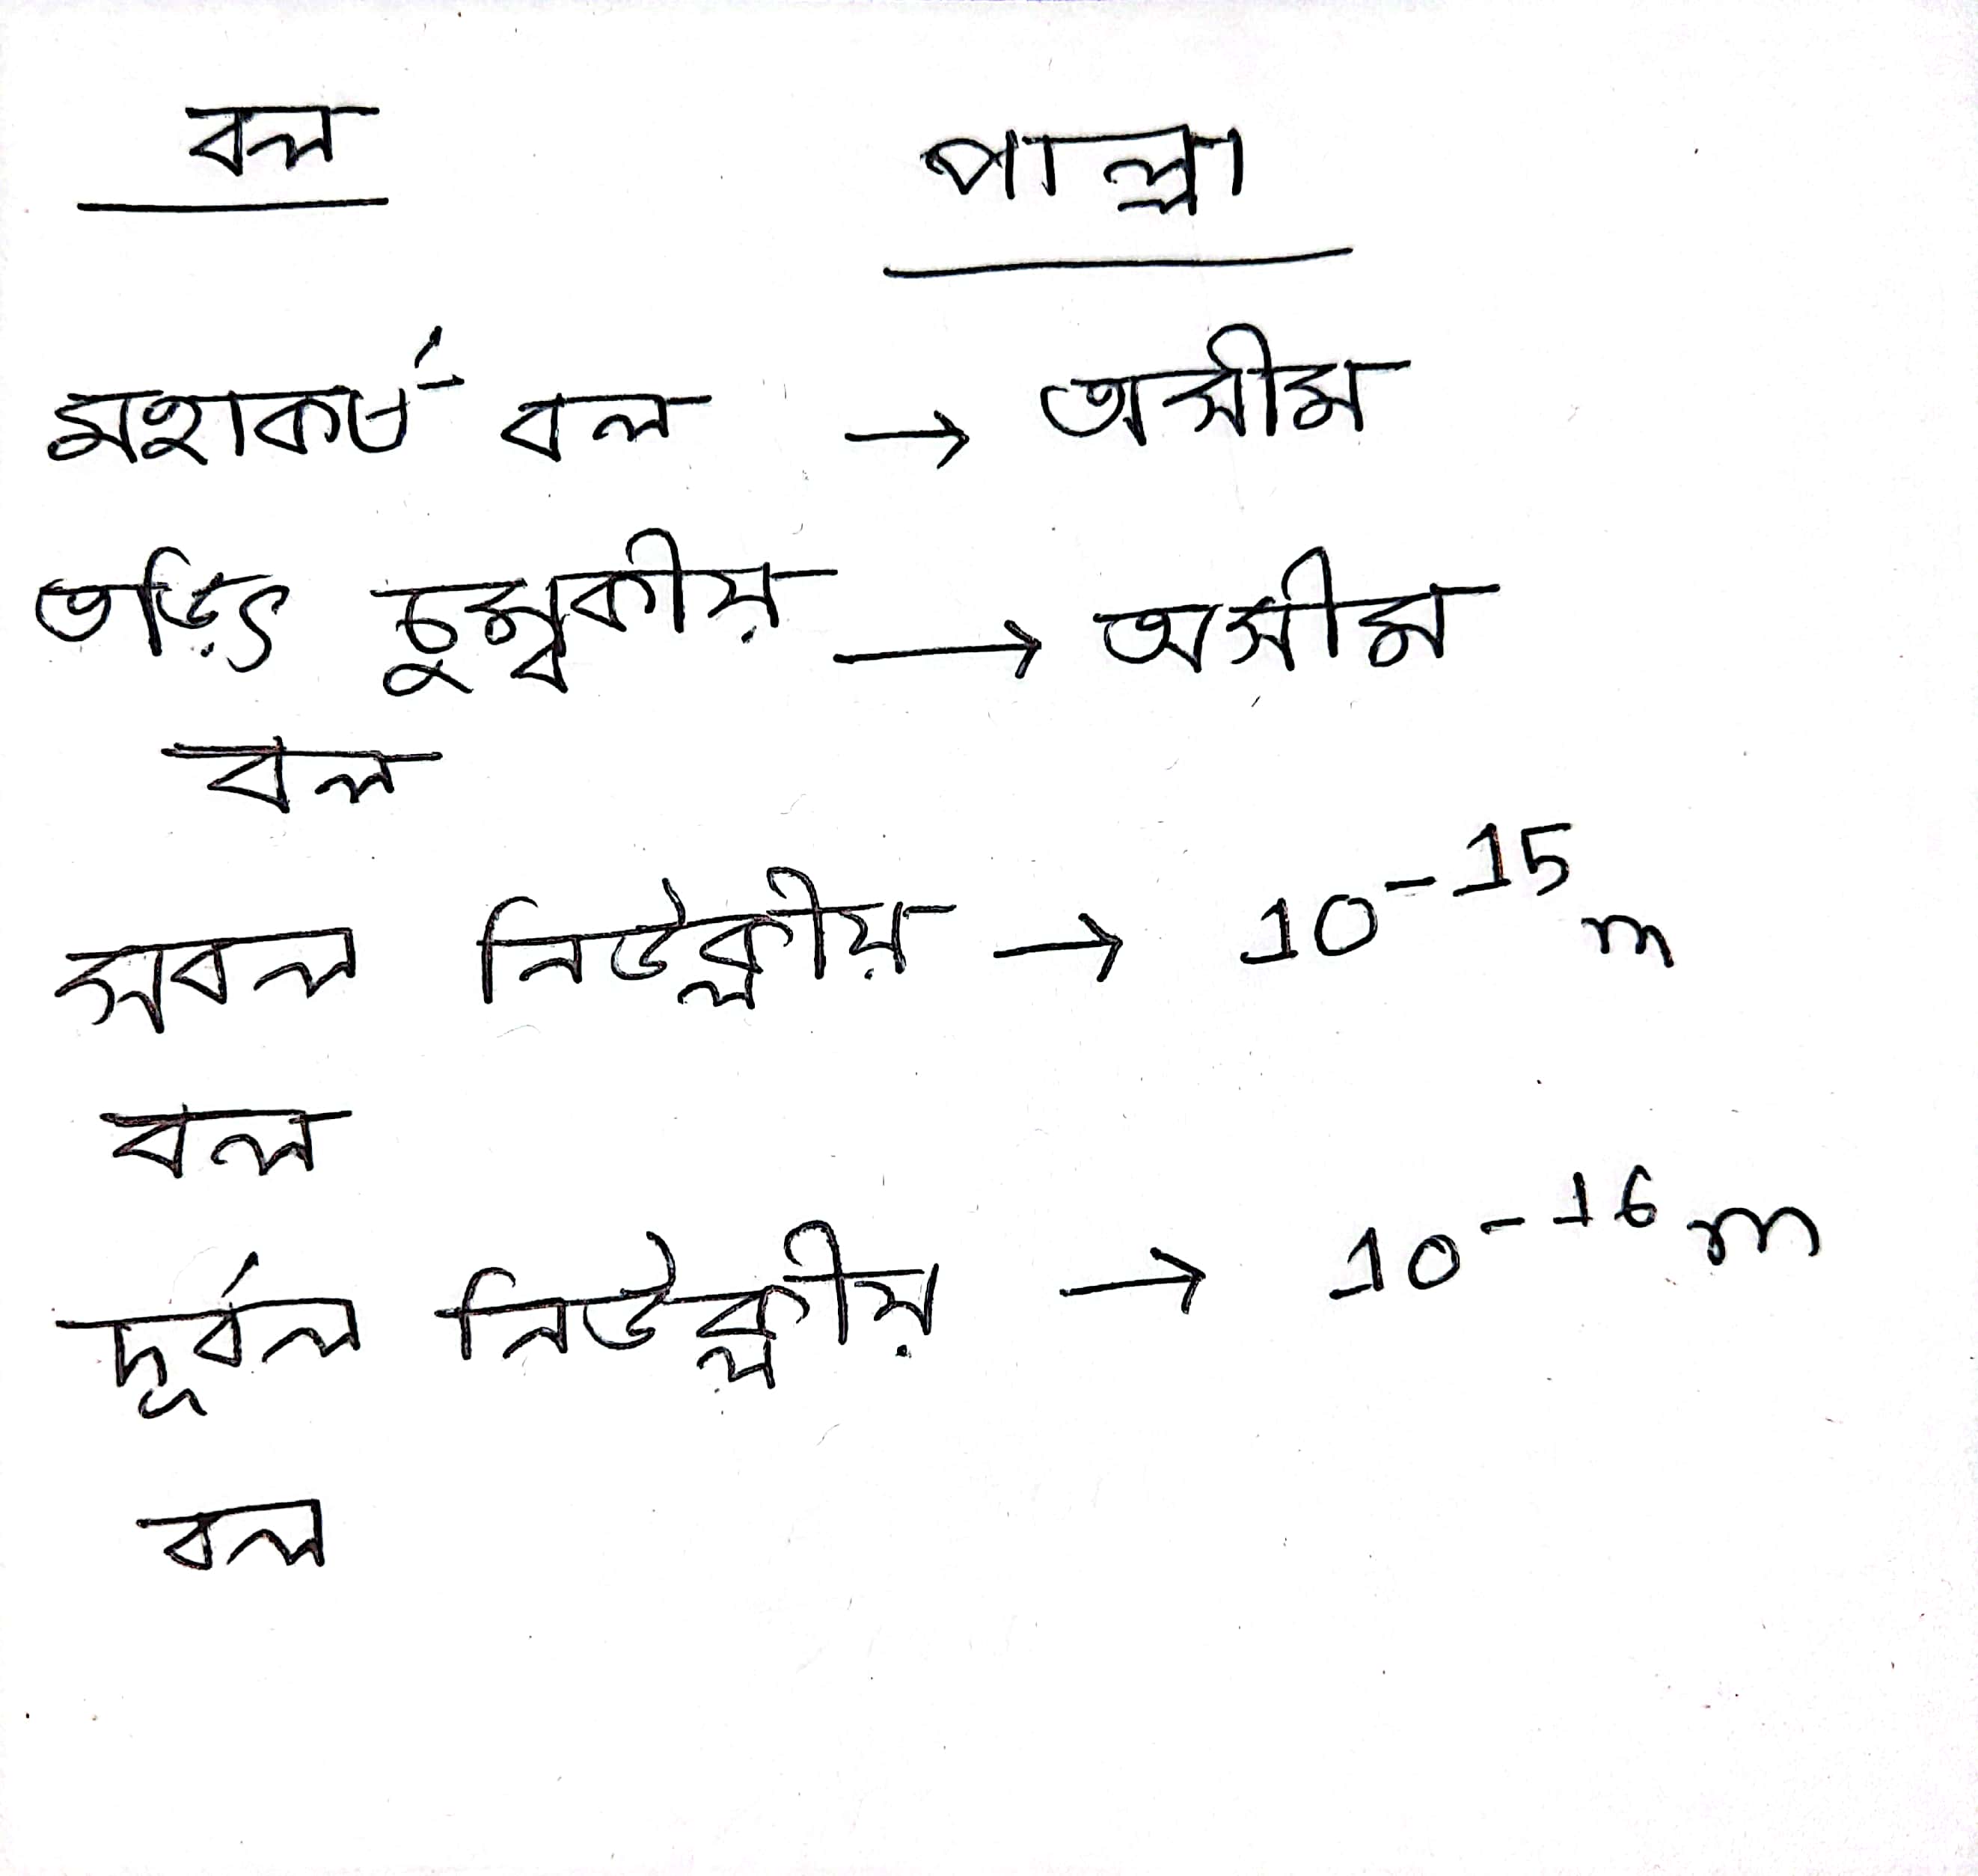 বল পাল্লা
মহাকর্ষ বল → অসীম
তড়িৎ চুম্বকীয় → অসীম
বল
সবল নিউক্লীয় → 10⁻¹⁵ m
বল
দূর্বল নিউক্লীয় → 10⁻¹⁶ m
বল